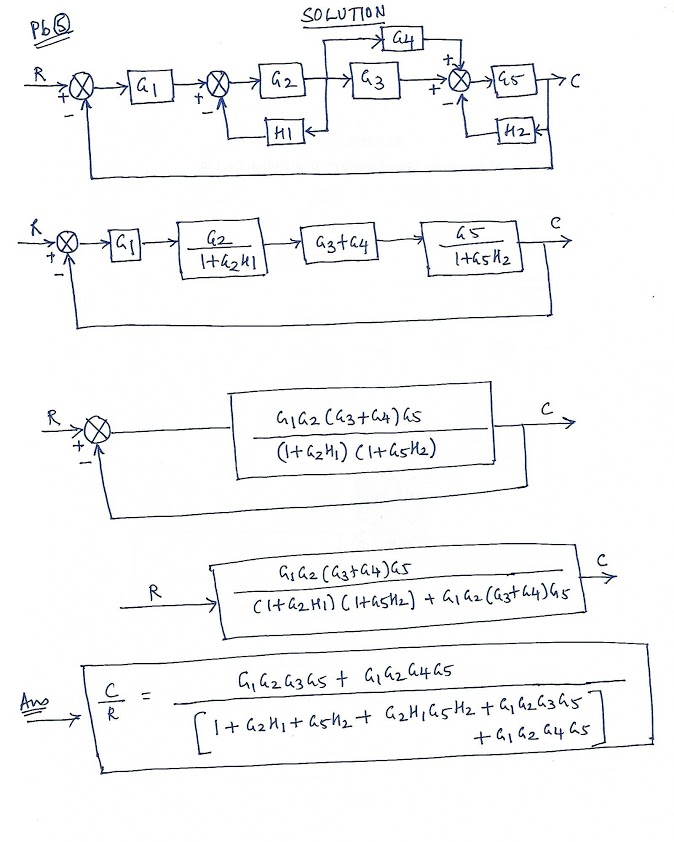 Pb⑤
SOLUTION
R + - G1 + - G2 G3 G4 + + - G5 C
H1 H2
R + - G1 G2 / 1+G2H1 G3+G4 G5 / 1+G5H2 C
R + - G1G2(G3+G4)G5 C
(1+G2H1)(1+G5H2)
R G1G2(G3+G4)G5 C
(1+G2H1)(1+G5H2) + G1G2(G3+G4)G5
Ans C/R = G1G2G3G5 + G1G2G4G5
[1+G2H1+G5H2+ G2H1G5H2+G1G2G3G5
+G1G2G4G5]